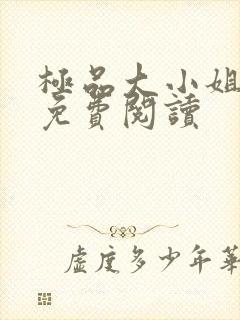 極品大小姐
免費閱讀
虛度多少年華